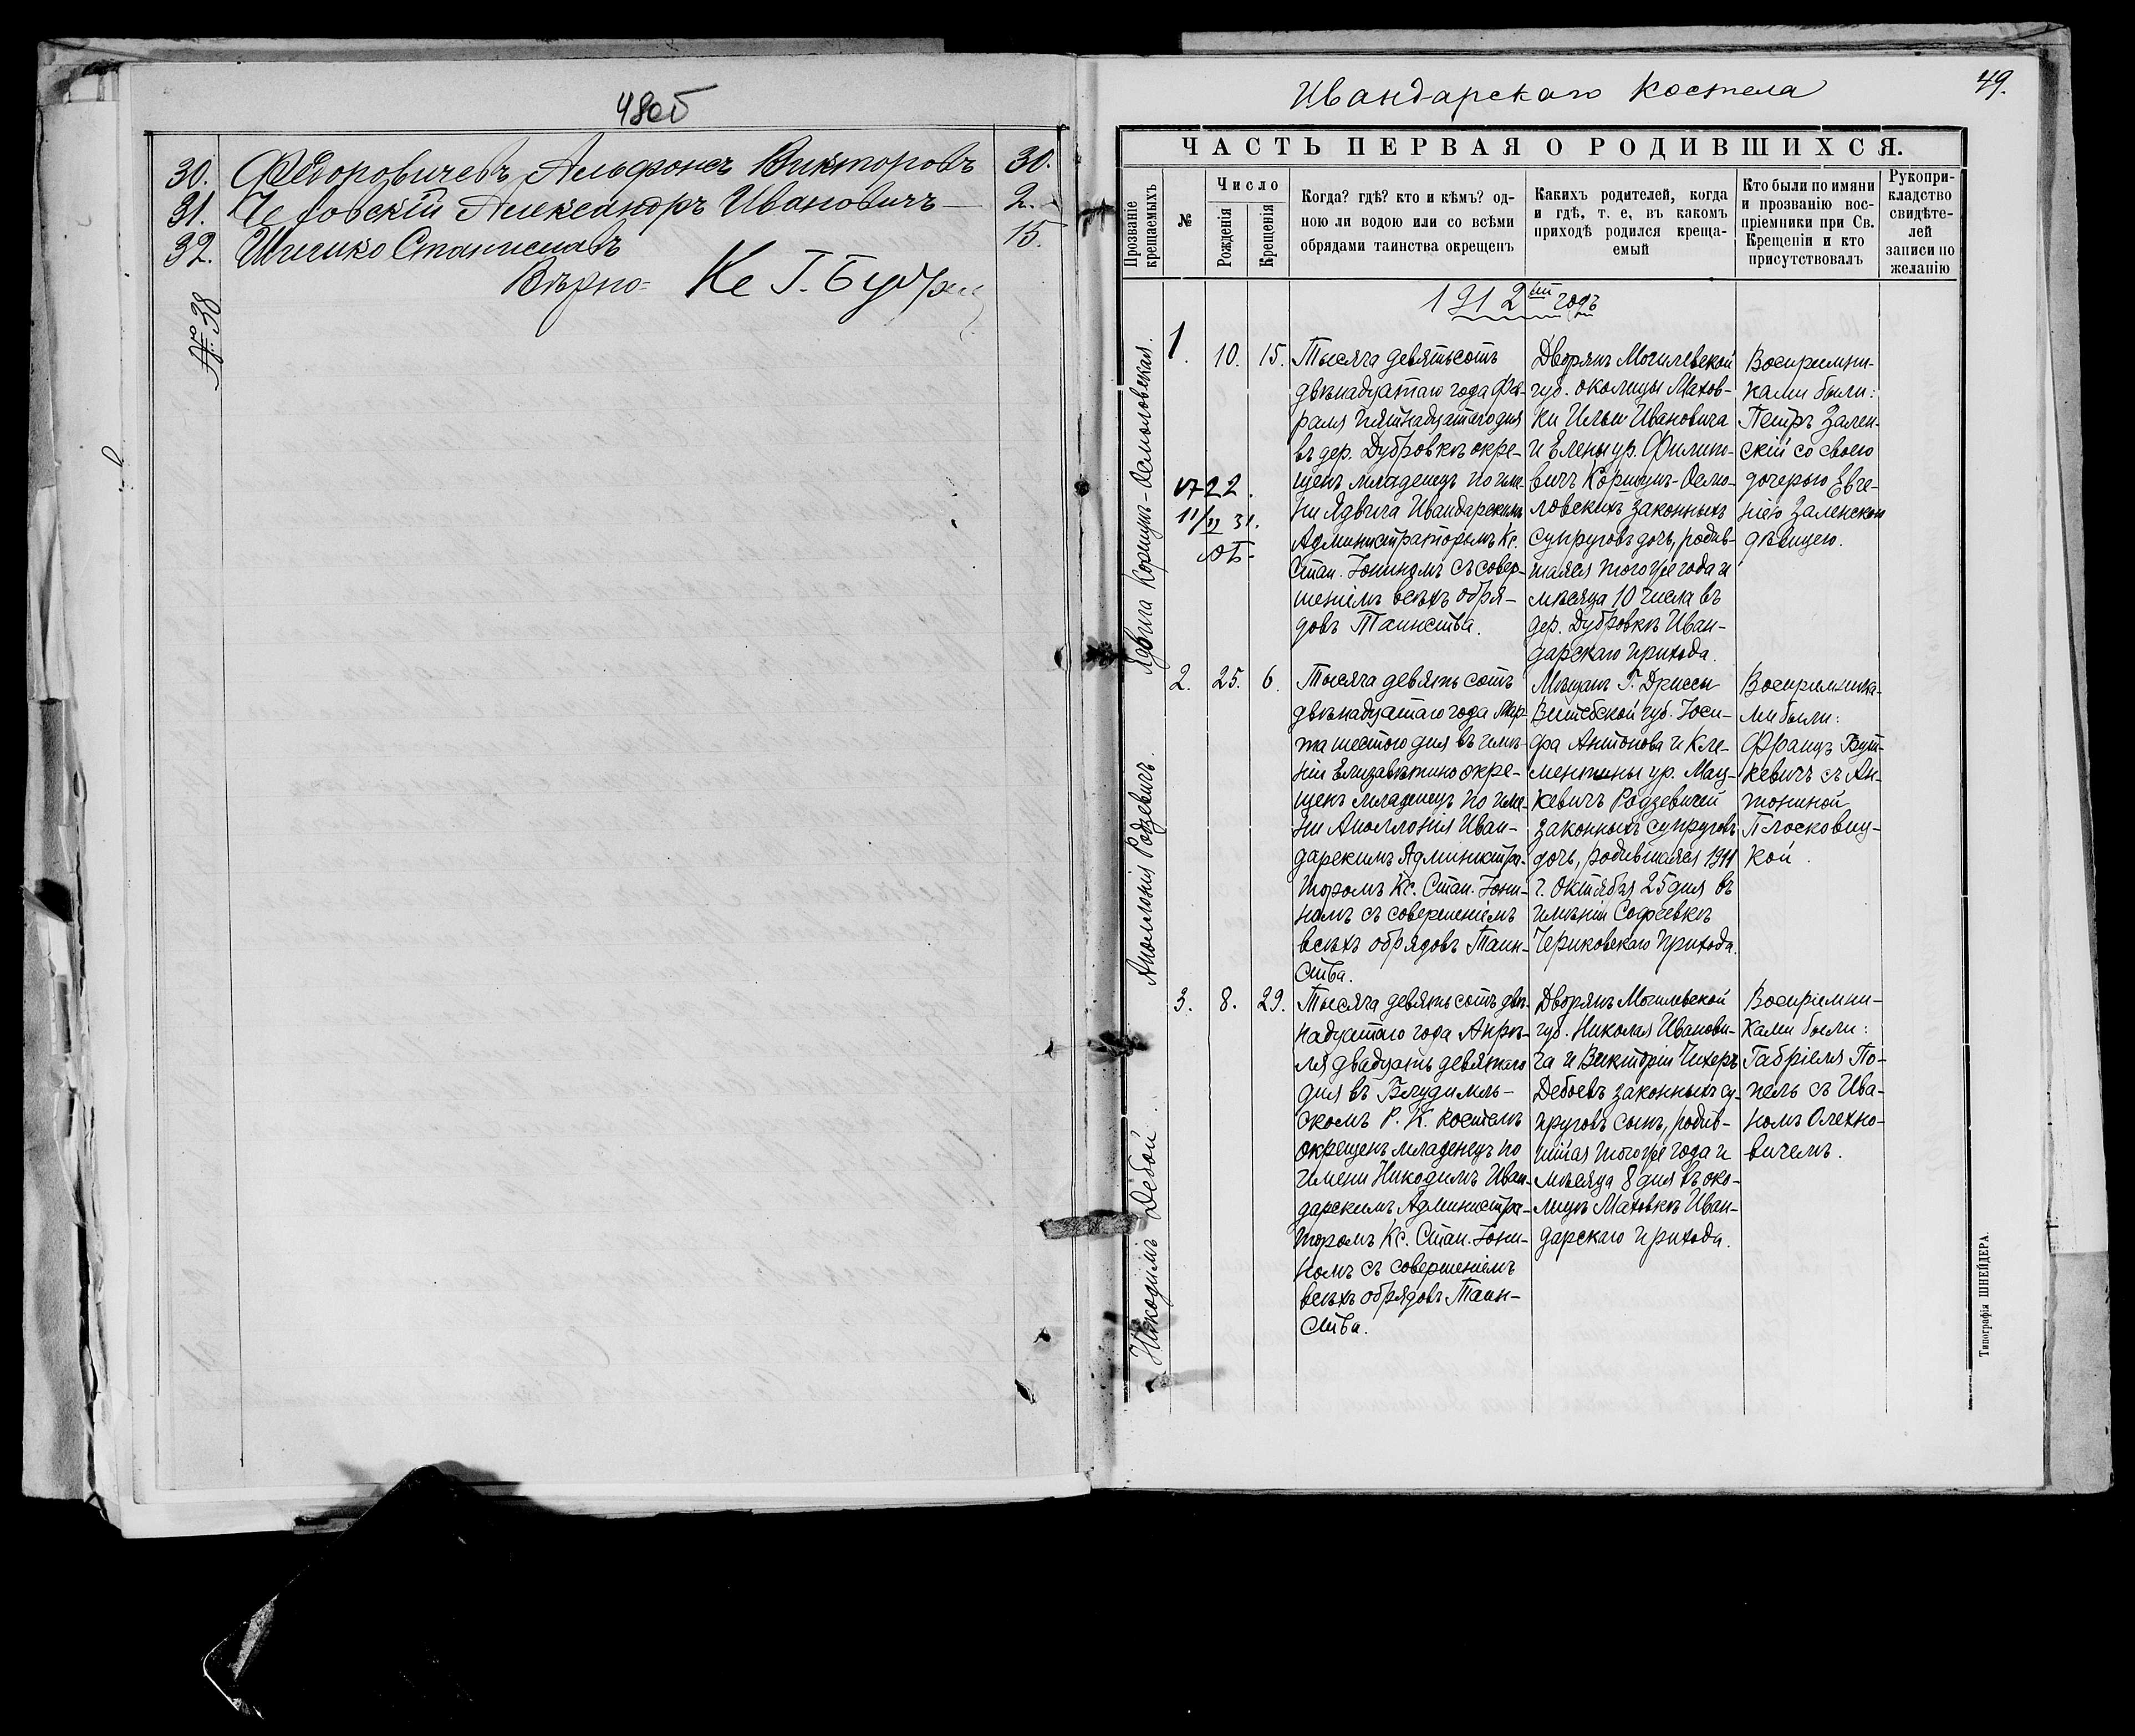 48об
30. Ѳедоровичевъ Альфонсъ Викторовъ 30.
31. Александръ Ивановичъ — 2.
32. Шишко Станиславъ 15.
Вѣрно= Кс Г.
№ 38
Ивандарскаго Костела
49.
ЧАСТЬ ПЕРВАЯ О РОДИВШИХСЯ.
Прозваніе крещаемыхъ
№
Число
Рожденія
Крещенія
Когда? гдѣ? кто и кѣмъ? од-
ною ли водою или со всѣми
обрядами таинства окрещенъ
Какихъ родителей, когда
и гдѣ, т. е, въ какомъ
приходѣ родился креща-
емый
Кто были по имяни
и прозванію вос-
пріемники при Св.
Крещеніи и кто
присутствовалъ
Рукопри-
кладство
свидѣте-
лей
записи по
желанію
1912ый годъ
Ядвига Коршунъ-Осмоловская.
1.
10. 15.
1722.
11/VI 31.
Тысяча девятьсотъ
двѣнадцатаго года Фев-
раля пятнадцатаго дня
въ дер. Дубровкѣ окре-
щенъ младенецъ по име-
ни Ядвига Ивандарскимъ
Администраторомъ Кс.
Стан. Іониномъ съ совер-
шеніемъ всѣхъ обря-
довъ Таинства.
Дворянъ Могилевской
губ. околицы Махов-
ки Ильи Ивановича
и Елены ур. Филипо-
вичъ Коршунъ-Осмо-
ловскихъ законныхъ
супруговъ дочь, родив-
шаяся того же года и
мѣсяца 10 числа въ
дер. Дубровкѣ Иван-
дарскаго прихода.
Воспріемни-
ками были:
Петръ Зален-
скій со своею
дочерью Евге-
ніею Заленскою
дѣвицею.
Аполлонія Родзевичъ.
2. 25. 6.
Тысяча девятьсотъ
двѣнадцатаго года Мар-
та шестого дня въ имѣ-
ніи Елизаветино окре-
щенъ младенецъ по име-
ни Аполлонія Иван-
дарскимъ Администра-
торомъ Кс. Стан. Іони-
номъ съ совершеніемъ
всѣхъ обрядовъ Таин-
ства.
Мѣщанъ Г. Дриссы
Витебской губ. Іоси-
фа Антонова и Кле-
ментины ур. Мац-
кевичъ Родзевичей
законныхъ супруговъ
дочь, родившаяся 1911
г. Октября 25 дня въ
имѣніи Софіевкѣ
Чериковскаго прихода.
Воспріемника-
ми были:
Францъ Бут-
кевичъ съ Ан-
тониной
Плосковиц-
кой.
Никодимъ Дебой.
3. 8. 29.
Тысяча девятьсотъ двѣ-
надцатаго года Апрѣ-
ля двадцать девятаго
дня въ
скомъ Р. К. костелѣ
окрещенъ младенецъ по
имени Никодимъ Иван-
дарскимъ Администра-
торомъ Кс. Стан. Іони-
номъ съ совершеніемъ
всѣхъ обрядовъ Таин-
ства.
Дворянъ Могилевской
губ. Николая Иванови-
ча и Викторіи Чихеръ
Дебоевъ законныхъ су-
пруговъ сынъ, родив-
шійся того же года и
мѣсяца 8 дня въ око-
лицѣ Маховкѣ Иван-
дарскаго прихода.
Воспріемни-
ками были:
Габріеля По-
пель съ Ива-
номъ Олехно-
вичемъ.
Типографія ШНЕЙДЕРА.